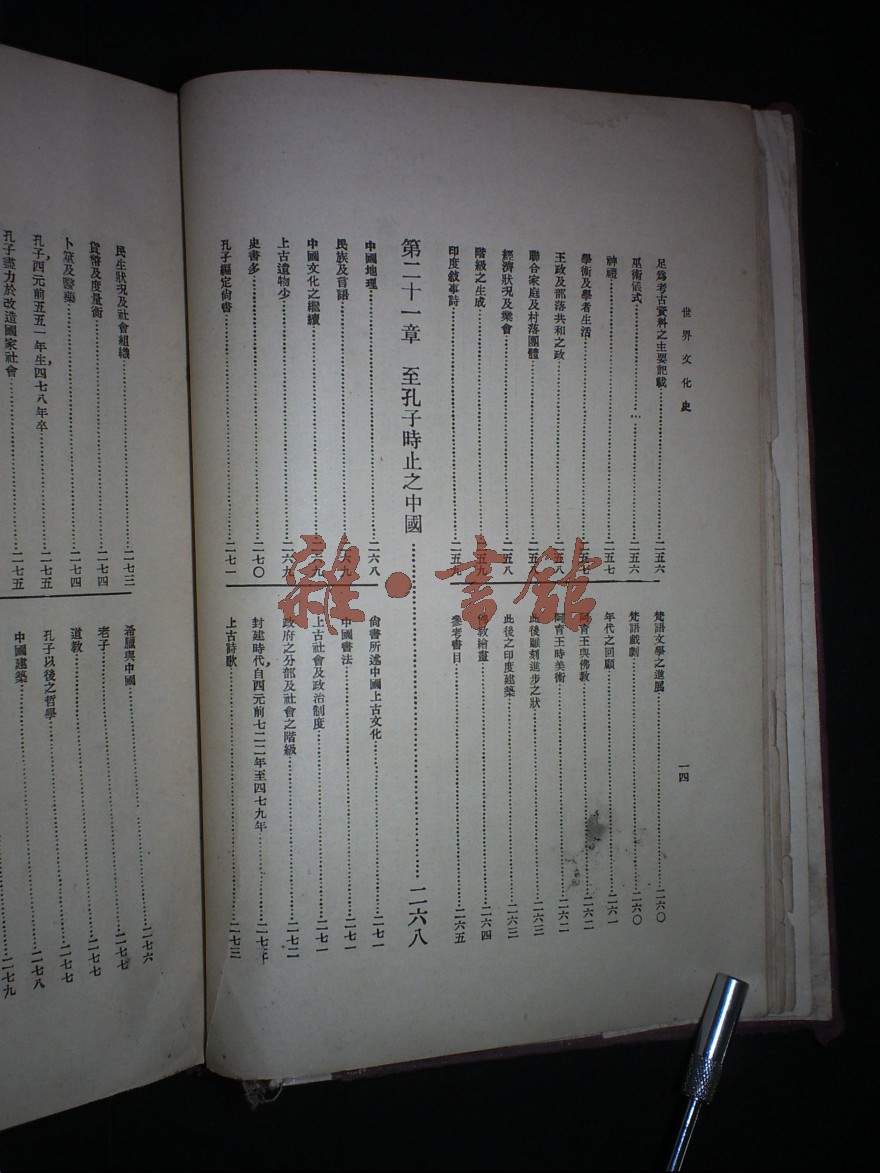 世界文化史
一四
足爲考古資料之主要記載……二五六
巫術儀式……二五六
神禮……二五七
學術及學者生活……二五七
王政及部落共和之政……二五八
聯合家庭及村落團體……二五八
經濟狀況及業會……二五八
階級之生成……二五九
印度敘事詩……二五九
梵語文學之進展……二六〇
梵語戲劇……二六〇
年代之回顧……二六一
阿育王與佛教……二六二
阿育王時美術……二六二
此後雕刻進步之狀……二六三
此後之印度建築……二六三
佛教繪畫……二六四
參考書目……二六五
第二十一章 至孔子時止之中國……二六八
中國地理……二六八
民族及言語……二六九
中國文化之繼續……二六九
上古遺物少……二六九
史書多……二七〇
孔子編定尙書……二七一
尙書所述中國上古文化……二七一
中國書法……二七一
上古社會及政治制度……二七一
政府之分部及社會之階級……二七二
封建時代，自西元前七二二年至四七九年……二七
上古詩歌……二七三
民生狀況及社會組織……二七三
貨幣及度量衡……二七四
卜筮及醫藥……二七四
孔子，西元前五五一年生，四七八年卒……二七五
孔子盡力於改造國家社會……二七五
希臘與中國……二七六
老子……二七七
道教……二七七
孔子以後之哲學……二七八
中國建築……二七九
雜·書館